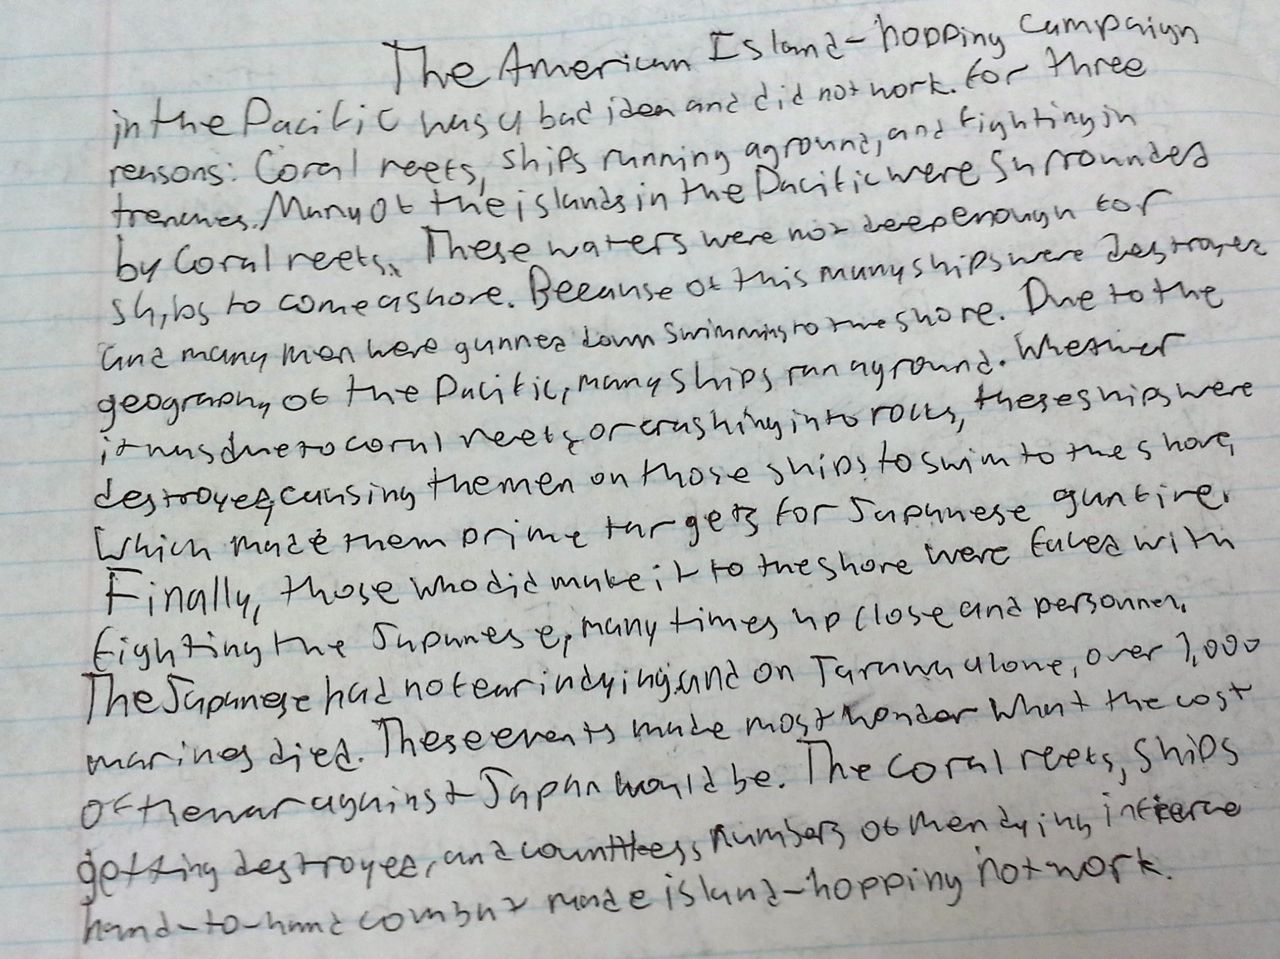 The American Island-hopping campaign
in the Pacific was a bad idea and did not work. for three
reasons: Coral reefs, ships running aground, and fighting in
trenches. Many of the islands in the Pacific were surrounded
by Coral reefs. These waters were not deep enough for
ships to come ashore. Because of this many ships were destroyed
and many men were gunned down swimming to the shore. Due to the
geography of the Pacific, many ships ran aground. Whether
it was due to coral reefs or crashing into rocks, these ships were
destroyed, causing the men on those ships to swim to the shore,
Which made them prime targets for Japanese gunfire.
Finally, those who did make it to the shore were faced with
fighting the Japanese, many times up close and personnel.
The Japanese had no fear in dying, and on Tarawa alone, over 1,000
marines died. These events made most wonder what the cost
of the war against Japan would be. The coral reefs, ships
getting destroyed, and countless numbers of men dying in fierce
hand-to-hand combat made island-hopping not work.